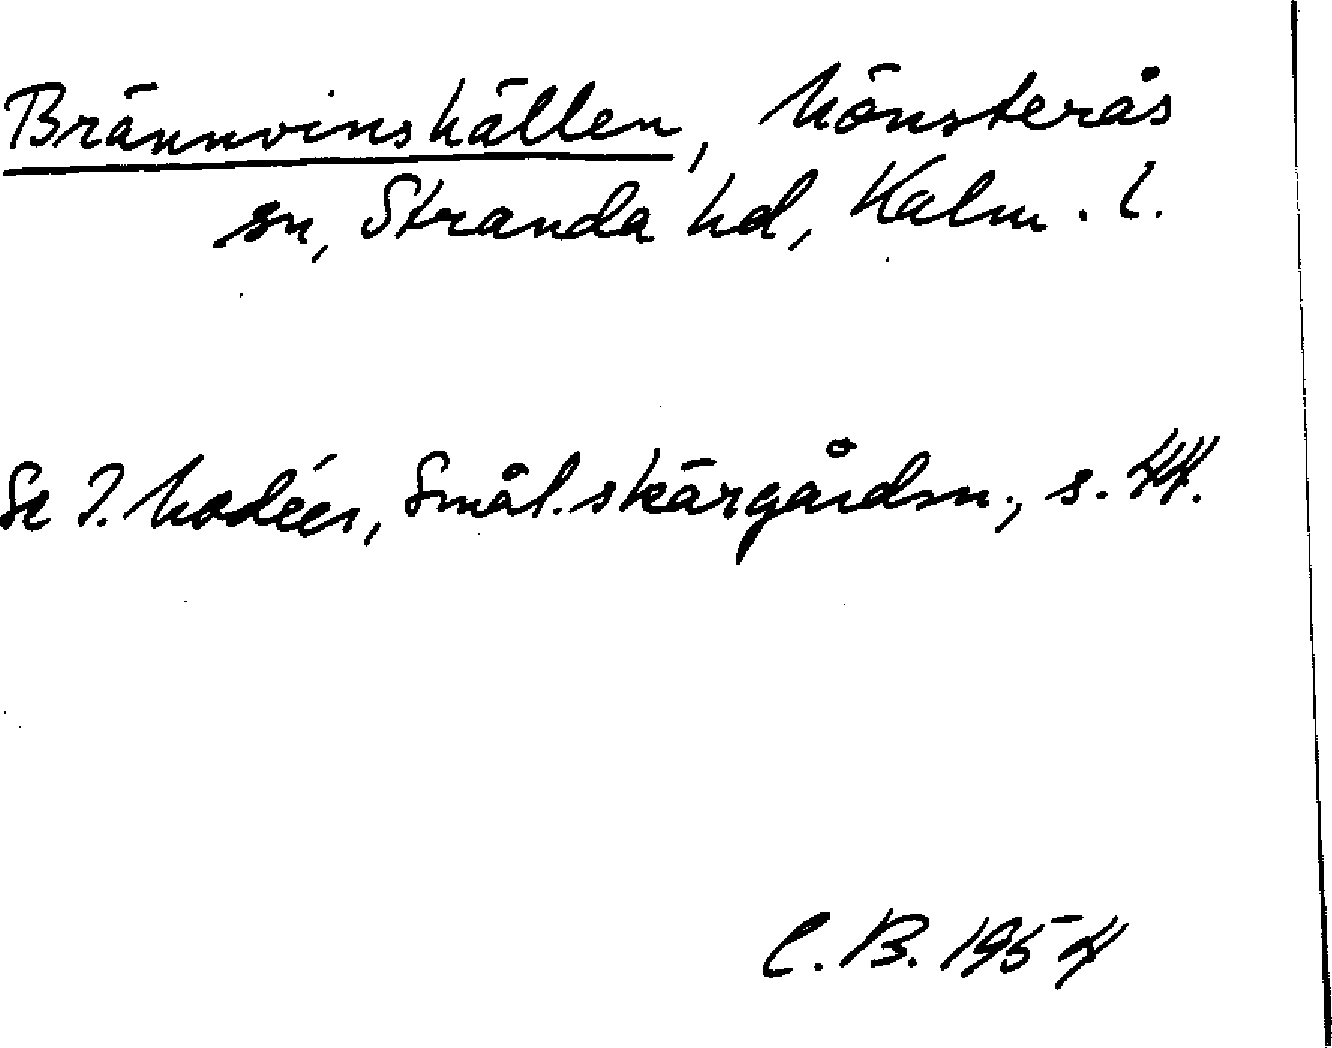 Brännvinshällen, Mönsterås
sn, Stranda hd, Kalm. l.
Se I. Modéer, Smål. skärgårdsn., s. 44.
C. B. 1954